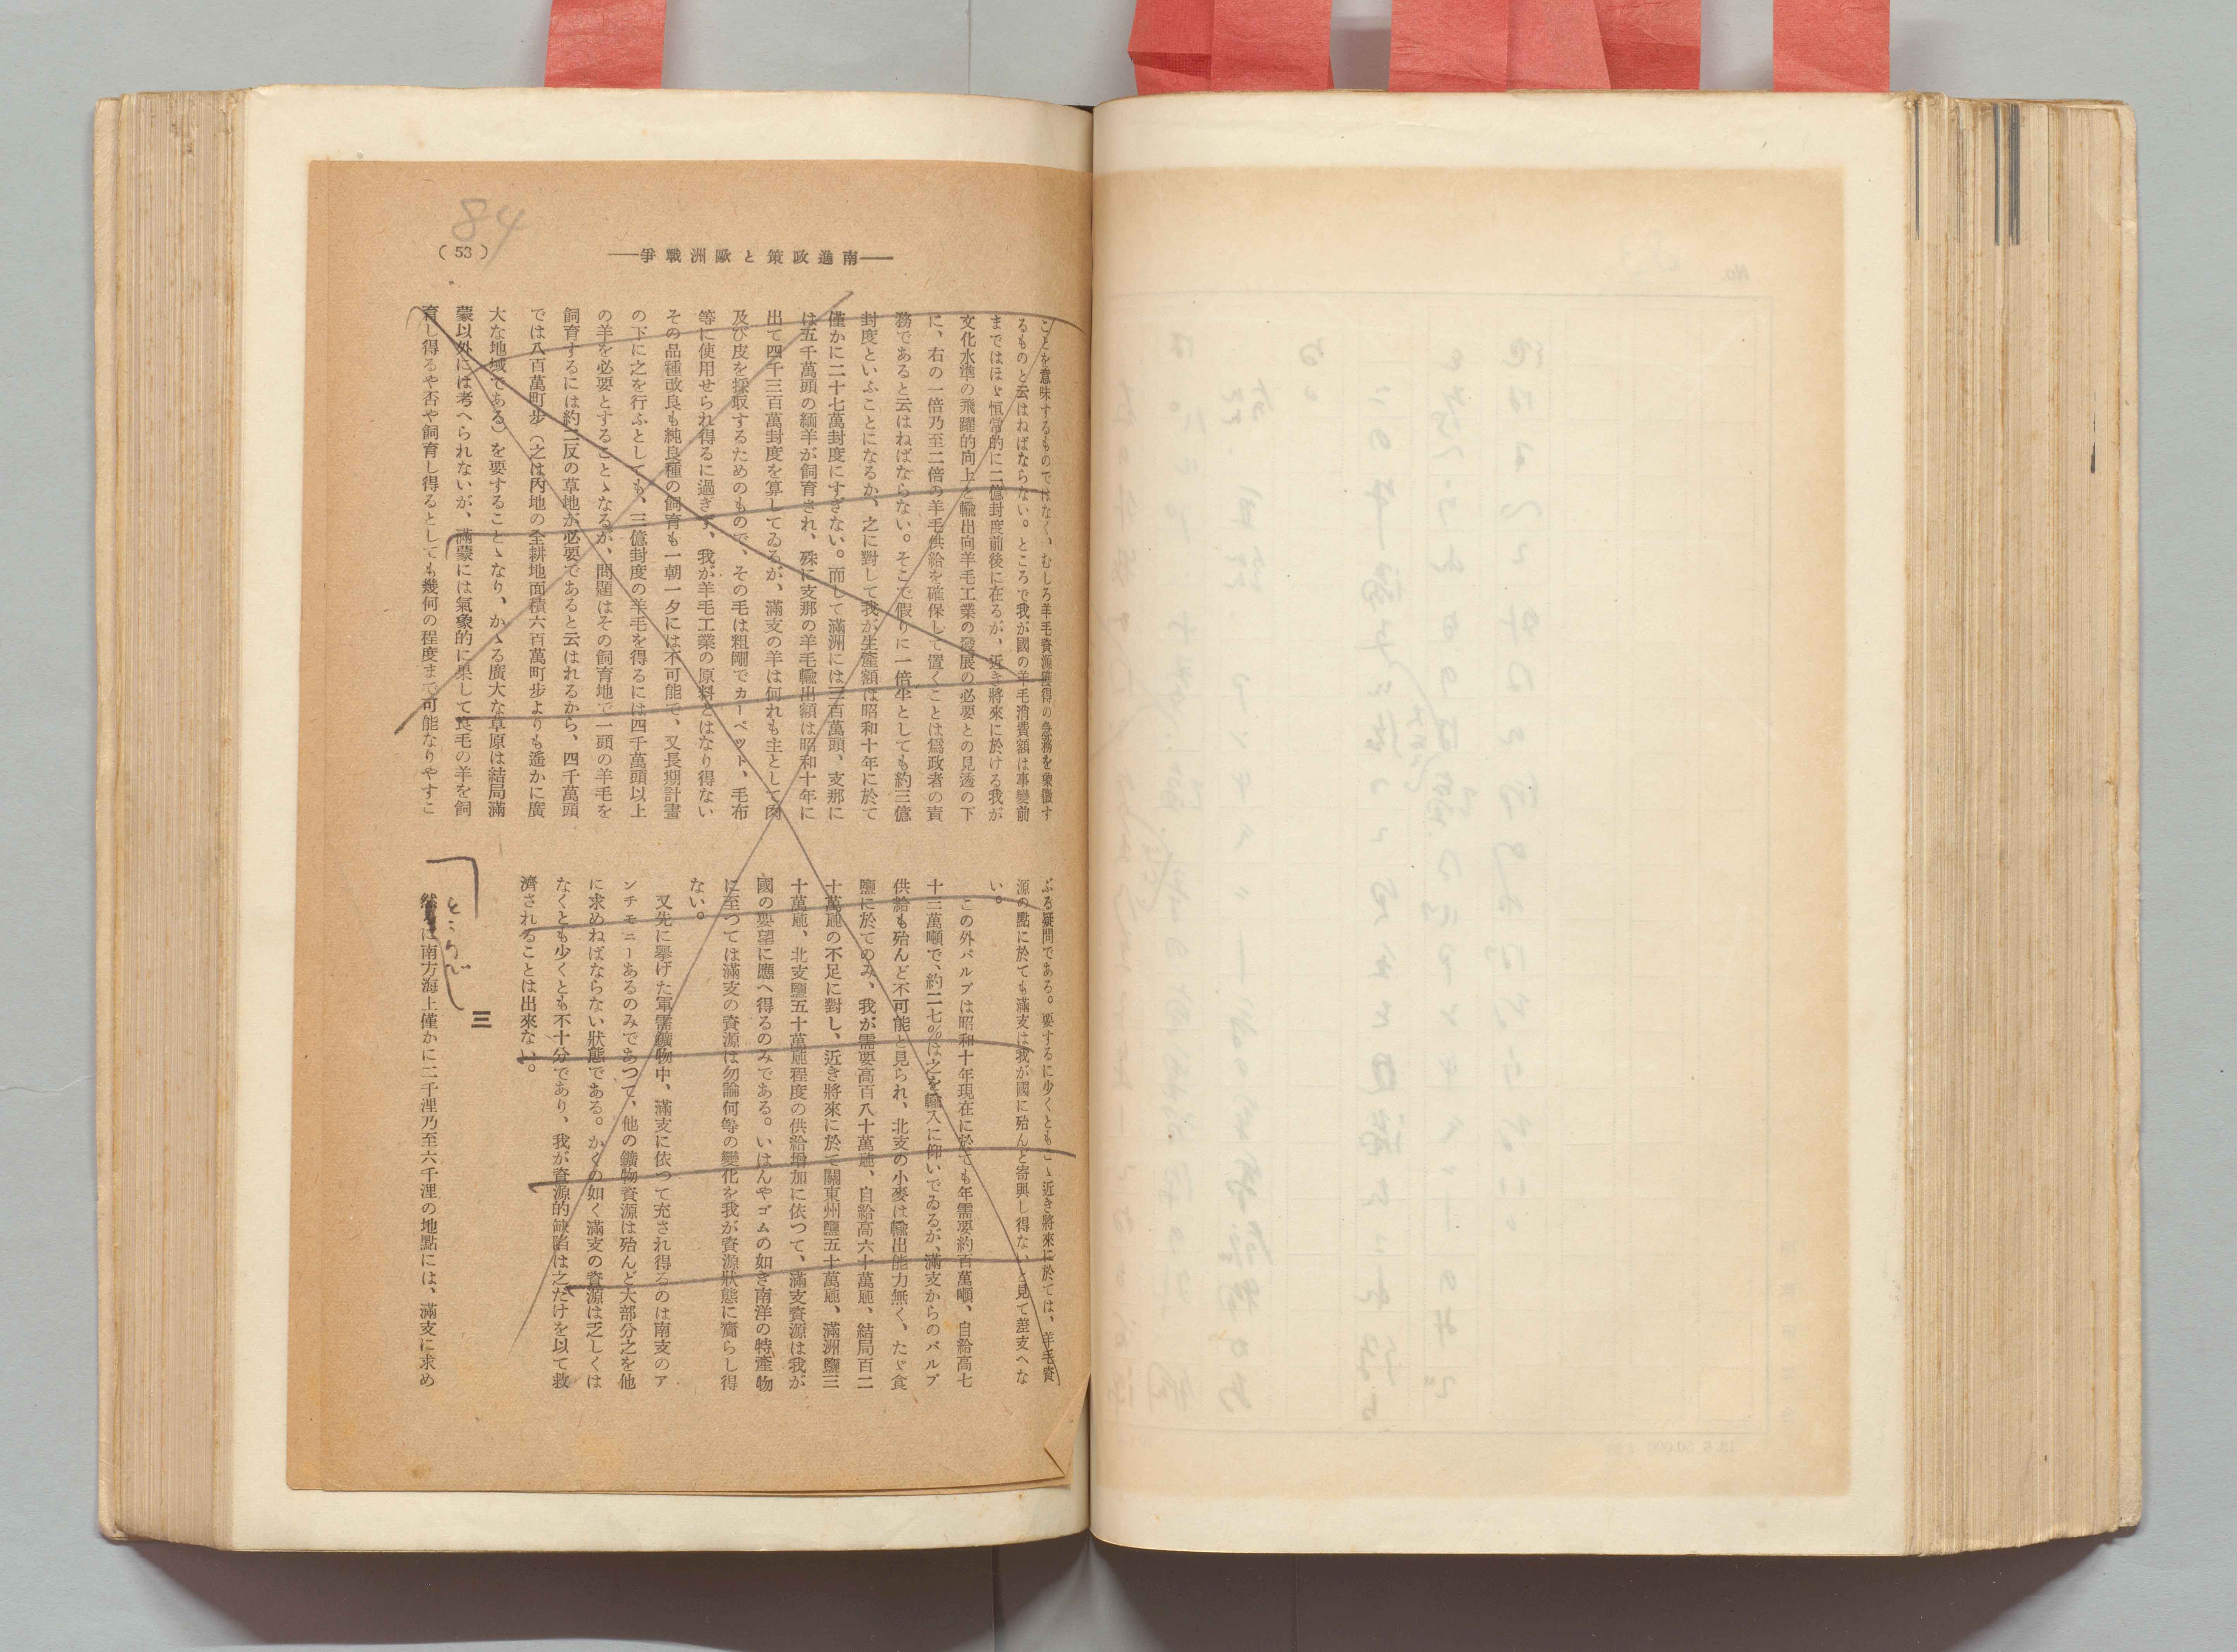 84
(53)
――南進政策と歐洲戰爭――
ことを意味するものではなく、むしろ羊毛資源獲得の急務を象徴す
るものと云はねばならない。ところで我が國の羊毛消費額は事變前
まではほゞ恒常的に二億封度前後に在るが、近き將來に於ける我が
文化水準の飛躍的向上と輸出向羊毛工業の發展の必要との見透の下
に、右の一倍乃至二倍の羊毛供給を確保して置くことは爲政者の責
務であると云はねばならない。そこで假りに一倍半としても約三億
封度といふことになるか、之に對して我が生產額は昭和十年に於て
僅かに二十七萬封度にすぎない。而して滿洲には三百萬頭、支那に
は五千萬頭の緬羊が飼育され、殊に支那の羊毛輸出額は昭和十年に
出て四千三百萬封度を算してゐるが、滿支の羊は何れも主として肉
及び皮を採取するためのもので、その毛は粗剛でカーペット、毛布
等に使用せられ得るに過ぎず、我が羊毛工業の原料とはなり得ない
その品種改良も純良種の飼育も一朝一夕には不可能で、又長期計畫
の下に之を行ふとしても、三億封度の羊毛を得るには四千萬頭以上
の羊を必要とすることゝなるが、問題はその飼育地で一頭の羊毛を
飼育するには約二反の草地が必要であると云はれるから、四千萬頭
では八百萬町步（之は內地の全耕地面積六百萬町步よりも遙かに廣
大な地域である）を要することゝなり、かゝる廣大な草原は結局滿
蒙以外には考へられないが、滿蒙には氣象的に果して良毛の羊を飼
育し得るや否や飼育し得るとしても幾何の程度まで可能なりやすこ
ぶる疑問である。要するに少くともこゝ近き將來に於ては、羊毛資
源の點に於ても滿支は我が國に殆んど寄與し得ないと見て差支へな
い。
この外パルプは昭和十年現在に於ても年需要約百萬噸、自給高七
十三萬噸で、約二七％は之を輸入に仰いでゐるが、滿支からのパルプ
供給も殆んど不可能と見られ、北支の小麥は輸出能力無く、たゞ食
鹽に於てのみ、我が需要高百八十萬瓲、自給高六十萬瓲、結局百二
十萬瓲の不足に對し、近き將來に於て關東州鹽五十萬瓲、滿洲鹽三
十萬瓲、北支鹽五十萬瓲程度の供給增加に依つて、滿支資源は我が
國の要望に應へ得るのみである。いはんやゴムの如き南洋の特產物
に至つては滿支の資源は勿論何等の變化を我が資源狀態に齎らし得
ない。
又先に擧げた軍需鑛物中、滿支に依つて充され得るのは南支のア
ンチモニーあるのみであつて、他の鑛物資源は殆んど大部分之を他
に求めねばならない狀態である。かくの如く滿支の資源は乏しくは
なくとも少くとも不十分であり、我が資源的缺陷は之だけを以て救
濟されることは出來ない。
三
ところが
に南方海上僅かに二千浬乃至六千浬の地點には、滿支に求め